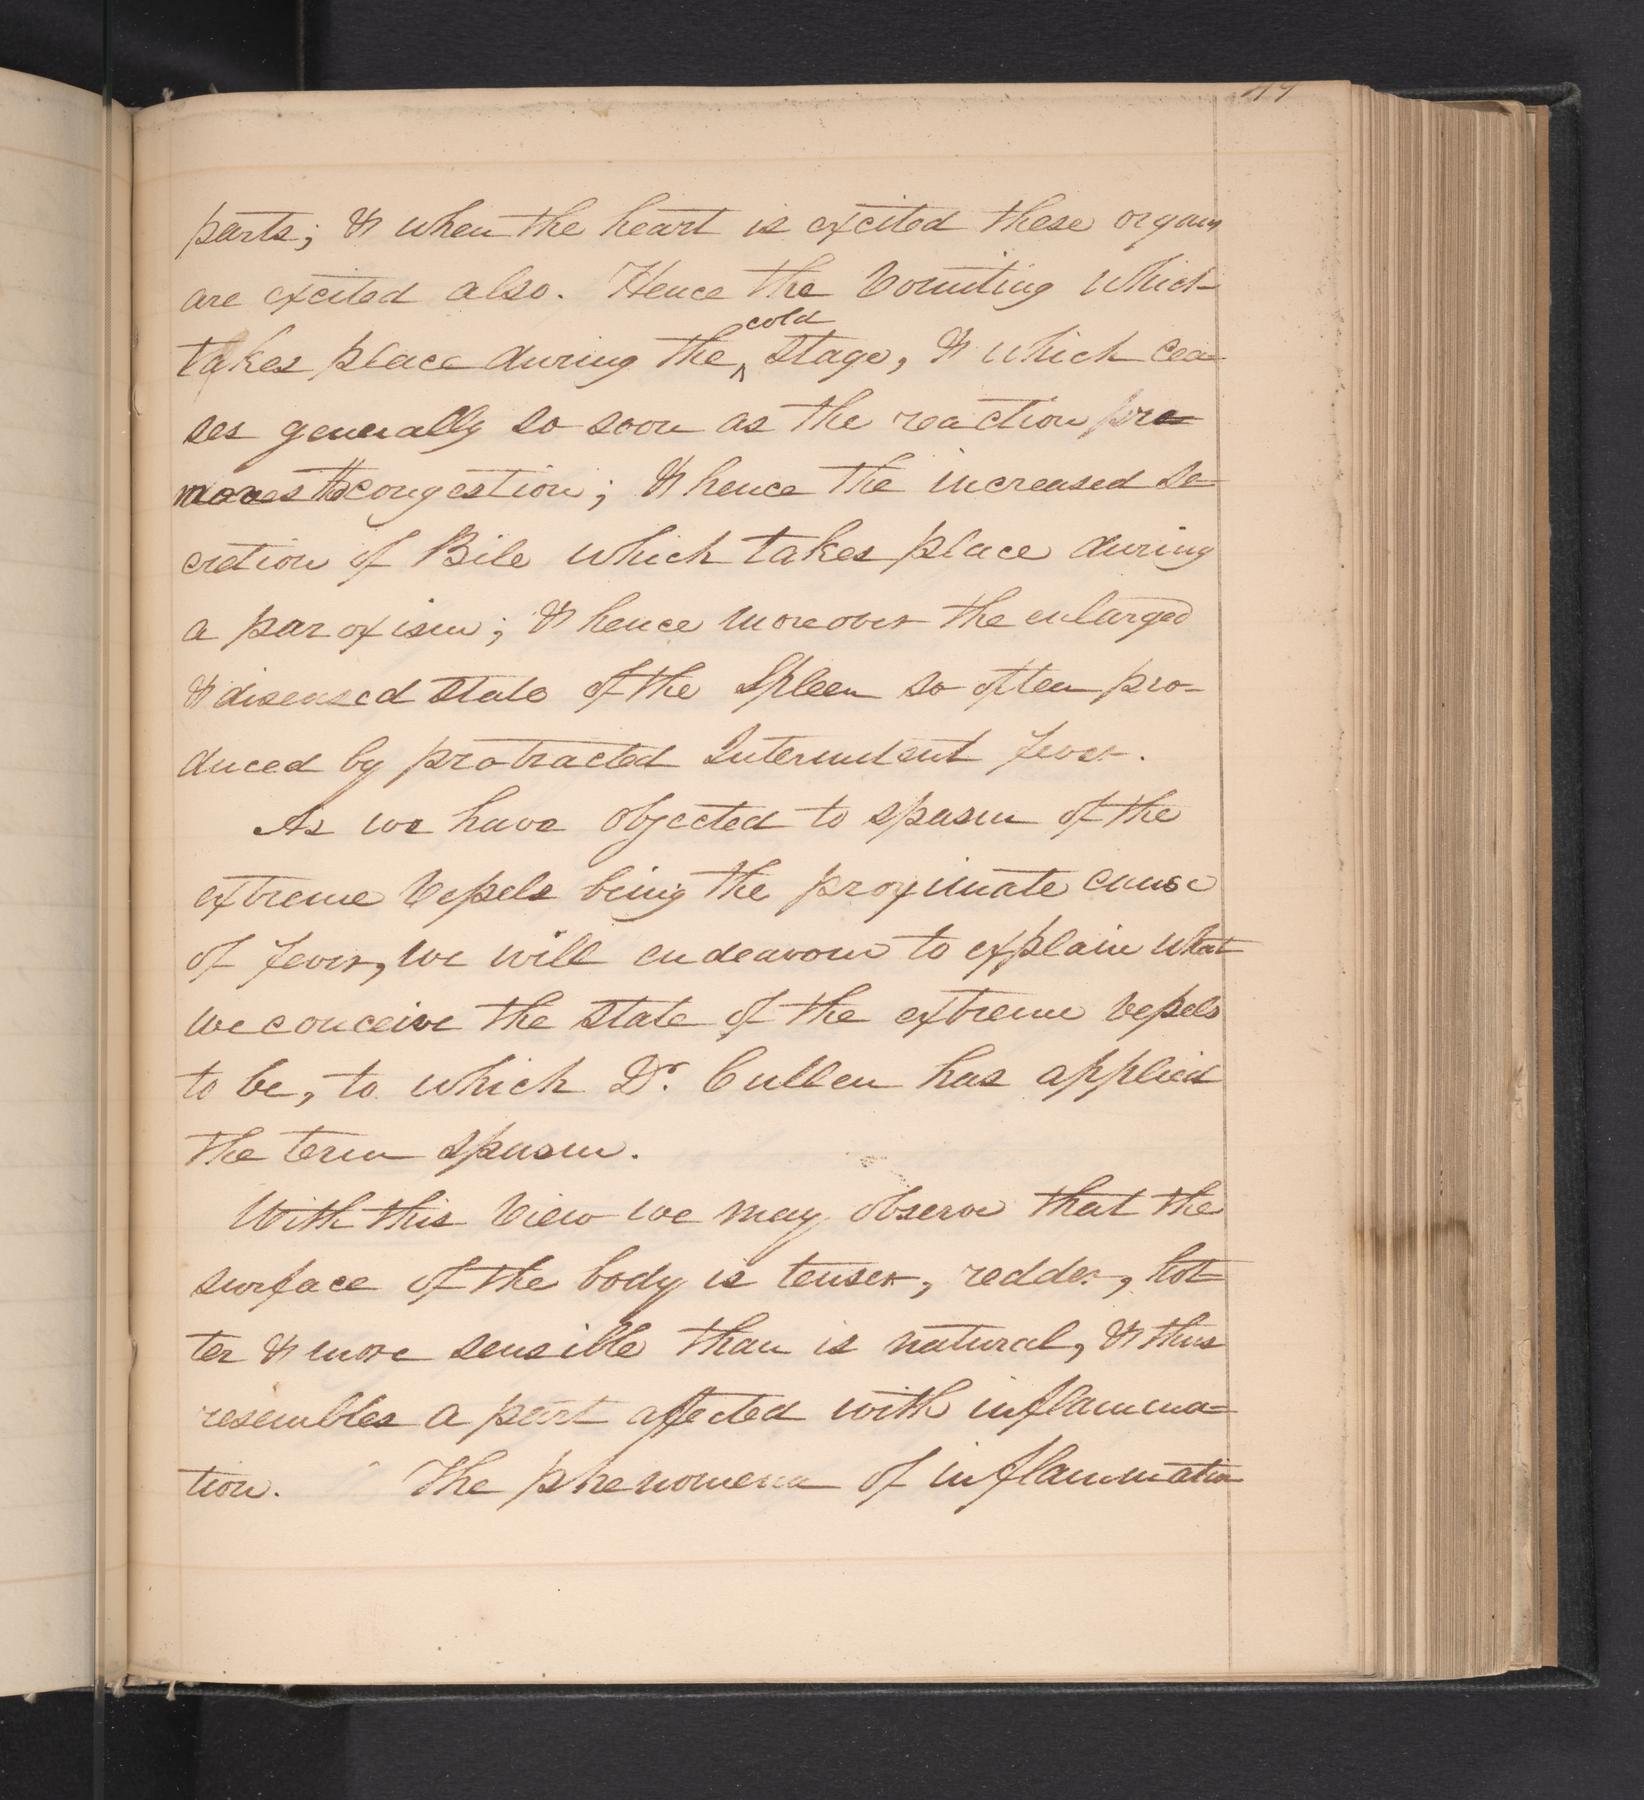 parts; & when the heart is excited these organs
are excited also. Hence the Vomiting which
cold
takes place during the ^ stage, & which cea
ses generally so soon as the reaction
moves the congestion; & hence the increased se=
cretion of Bile which takes place during
a paroxism; & hence moreover the enlarged
& diseased state of the Spleen so often pro-
duced by protracted Intermitent fever.
As we have objected to spasm of the
extreme Vessels being the proximate cause
of fever, we will endeavour to explain what
we conceive the state of the extreme Vessels
to be, to which Dr. Cullen has applied
the term spasm.
With this View we may observe that the
surface of the body is tenser, redder, hot=
ter & more sensible than is natural, & thus
resembles a part affected with inflamma=
tion. The phenomena of inflammation